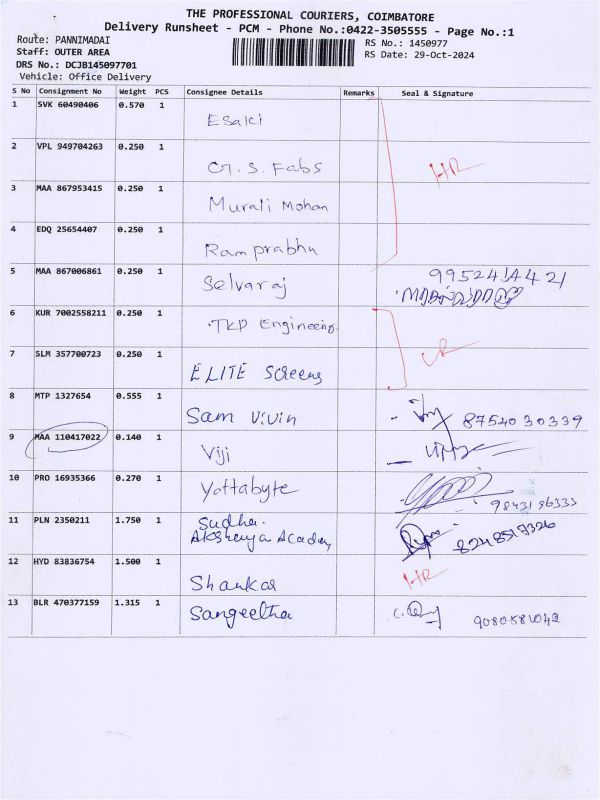 THE PROFESSIONAL COURIERS, COIMBATORE
Delivery Runsheet - PCM - Phone No.:0422-3505555 - Page No.:1
Route: PANNIMADAI
RS No.: 1450977
Staff: OUTER AREA
RS Date: 29-Oct-2024
DRS No.: DCJB145097701
Vehicle: Office Delivery
S No Consignment No Weight PCS Consignee Details Remarks Seal & Signature
1 SVK 60490406 0.570 1 Esaki
2 VPL 949704263 0.250 1 G. S. Fabs HR
3 MAA 867953415 0.250 1 Murali Mohan
4 EDQ 25654407 0.250 1 Ramprabhu
5 MAA 867006861 0.250 1 Selvaraj 9952414421
6 KUR 7002558211 0.250 1 TKD Engineering
7 SLM 357700723 0.250 1 ELITE Screens
8 MTP 1327654 0.555 1 Sam Vivin 8754030339
9 MAA 110417022 0.140 1 Viji
10 PRO 16935366 0.270 1 Yottabyte 9843196333
11 PLN 2350211 1.750 1 Sudha.
Akshenya Academy 8248517326
12 HYD 83836754 1.500 1 Shankar HR
13 BLR 470377159 1.315 1 Sangeetha 9080581042